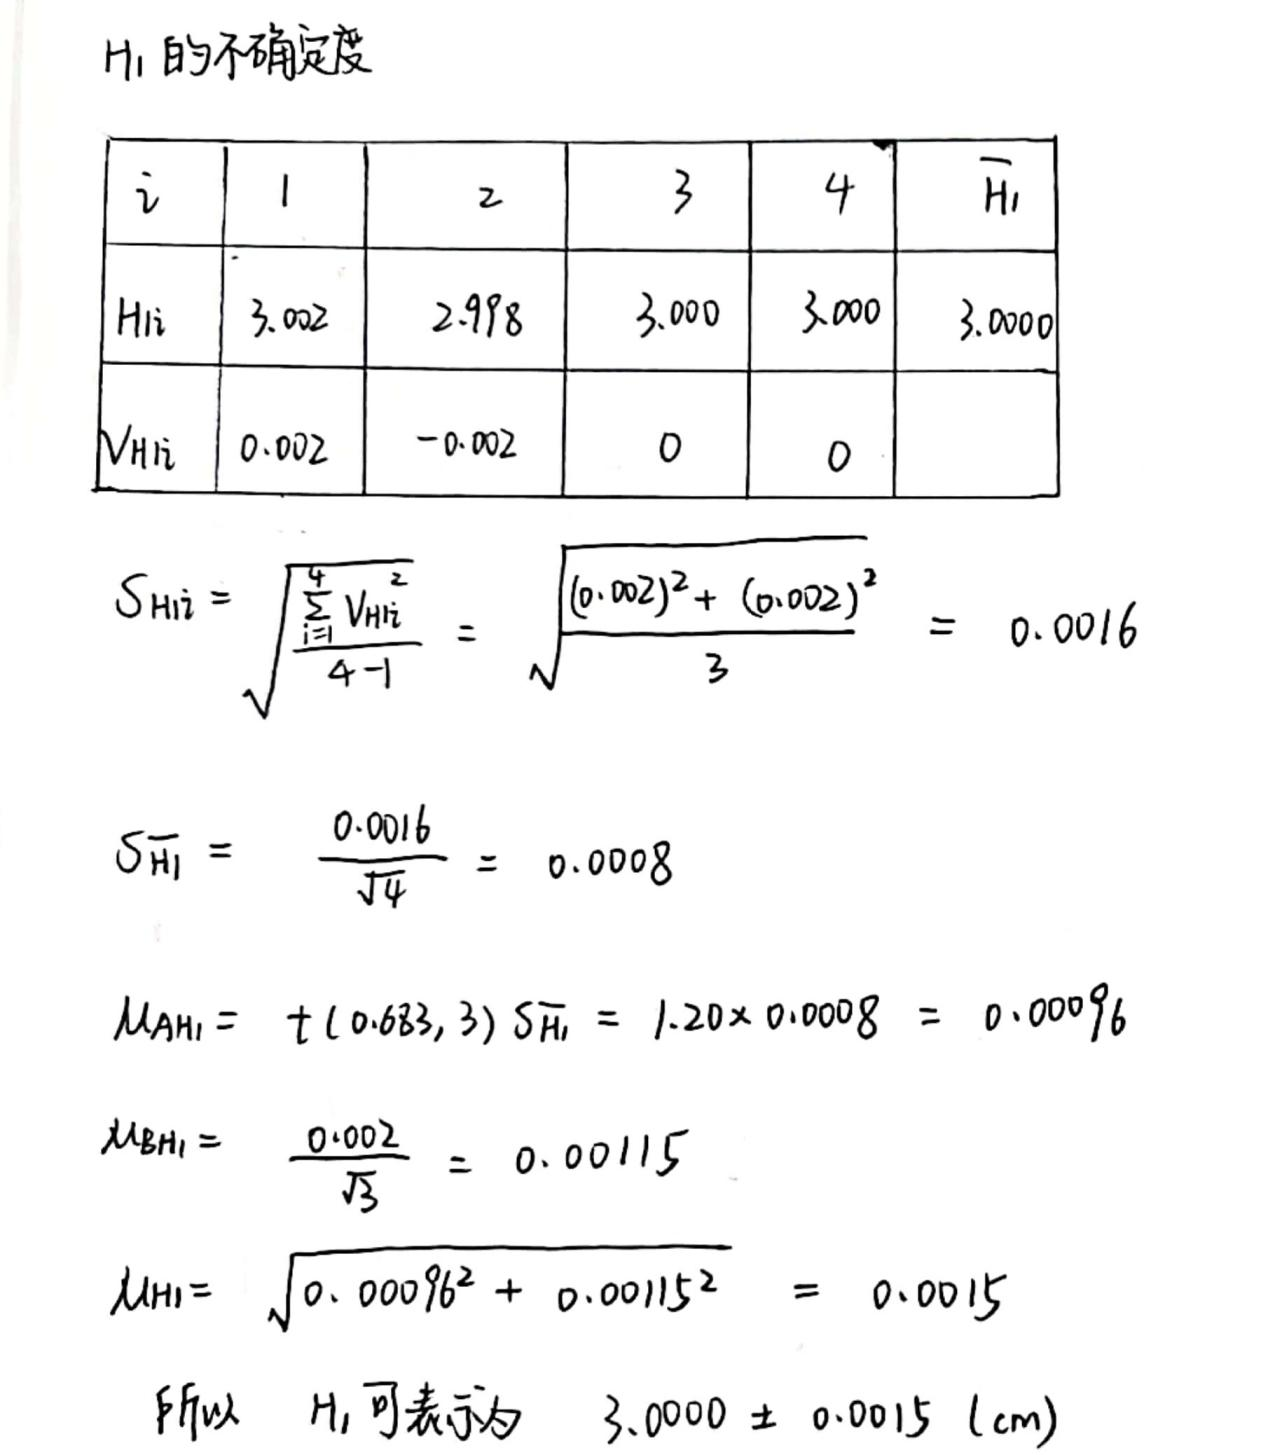 H₁ 的不确定度
i 1 2 3 4 H̅₁
H₁ᵢ 3.002 2.998 3.000 3.000 3.0000
V_H₁ᵢ 0.002 -0.002 0 0
S_H₁ᵢ = √(∑_{i=1}^{4} V_H₁ᵢ² / (4-1)) = √(((0.002)² + (0.002)²) / 3) = 0.0016
S_H̅₁ = 0.0016/√4 = 0.0008
μ_AH₁ = t(0.683, 3) S_H̅₁ = 1.20 × 0.0008 = 0.00096
μ_BH₁ = 0.002/√3 = 0.00115
μ_H₁ = √(0.00096² + 0.00115²) = 0.0015
所以 H₁ 可表示为 3.0000 ± 0.0015 (cm)